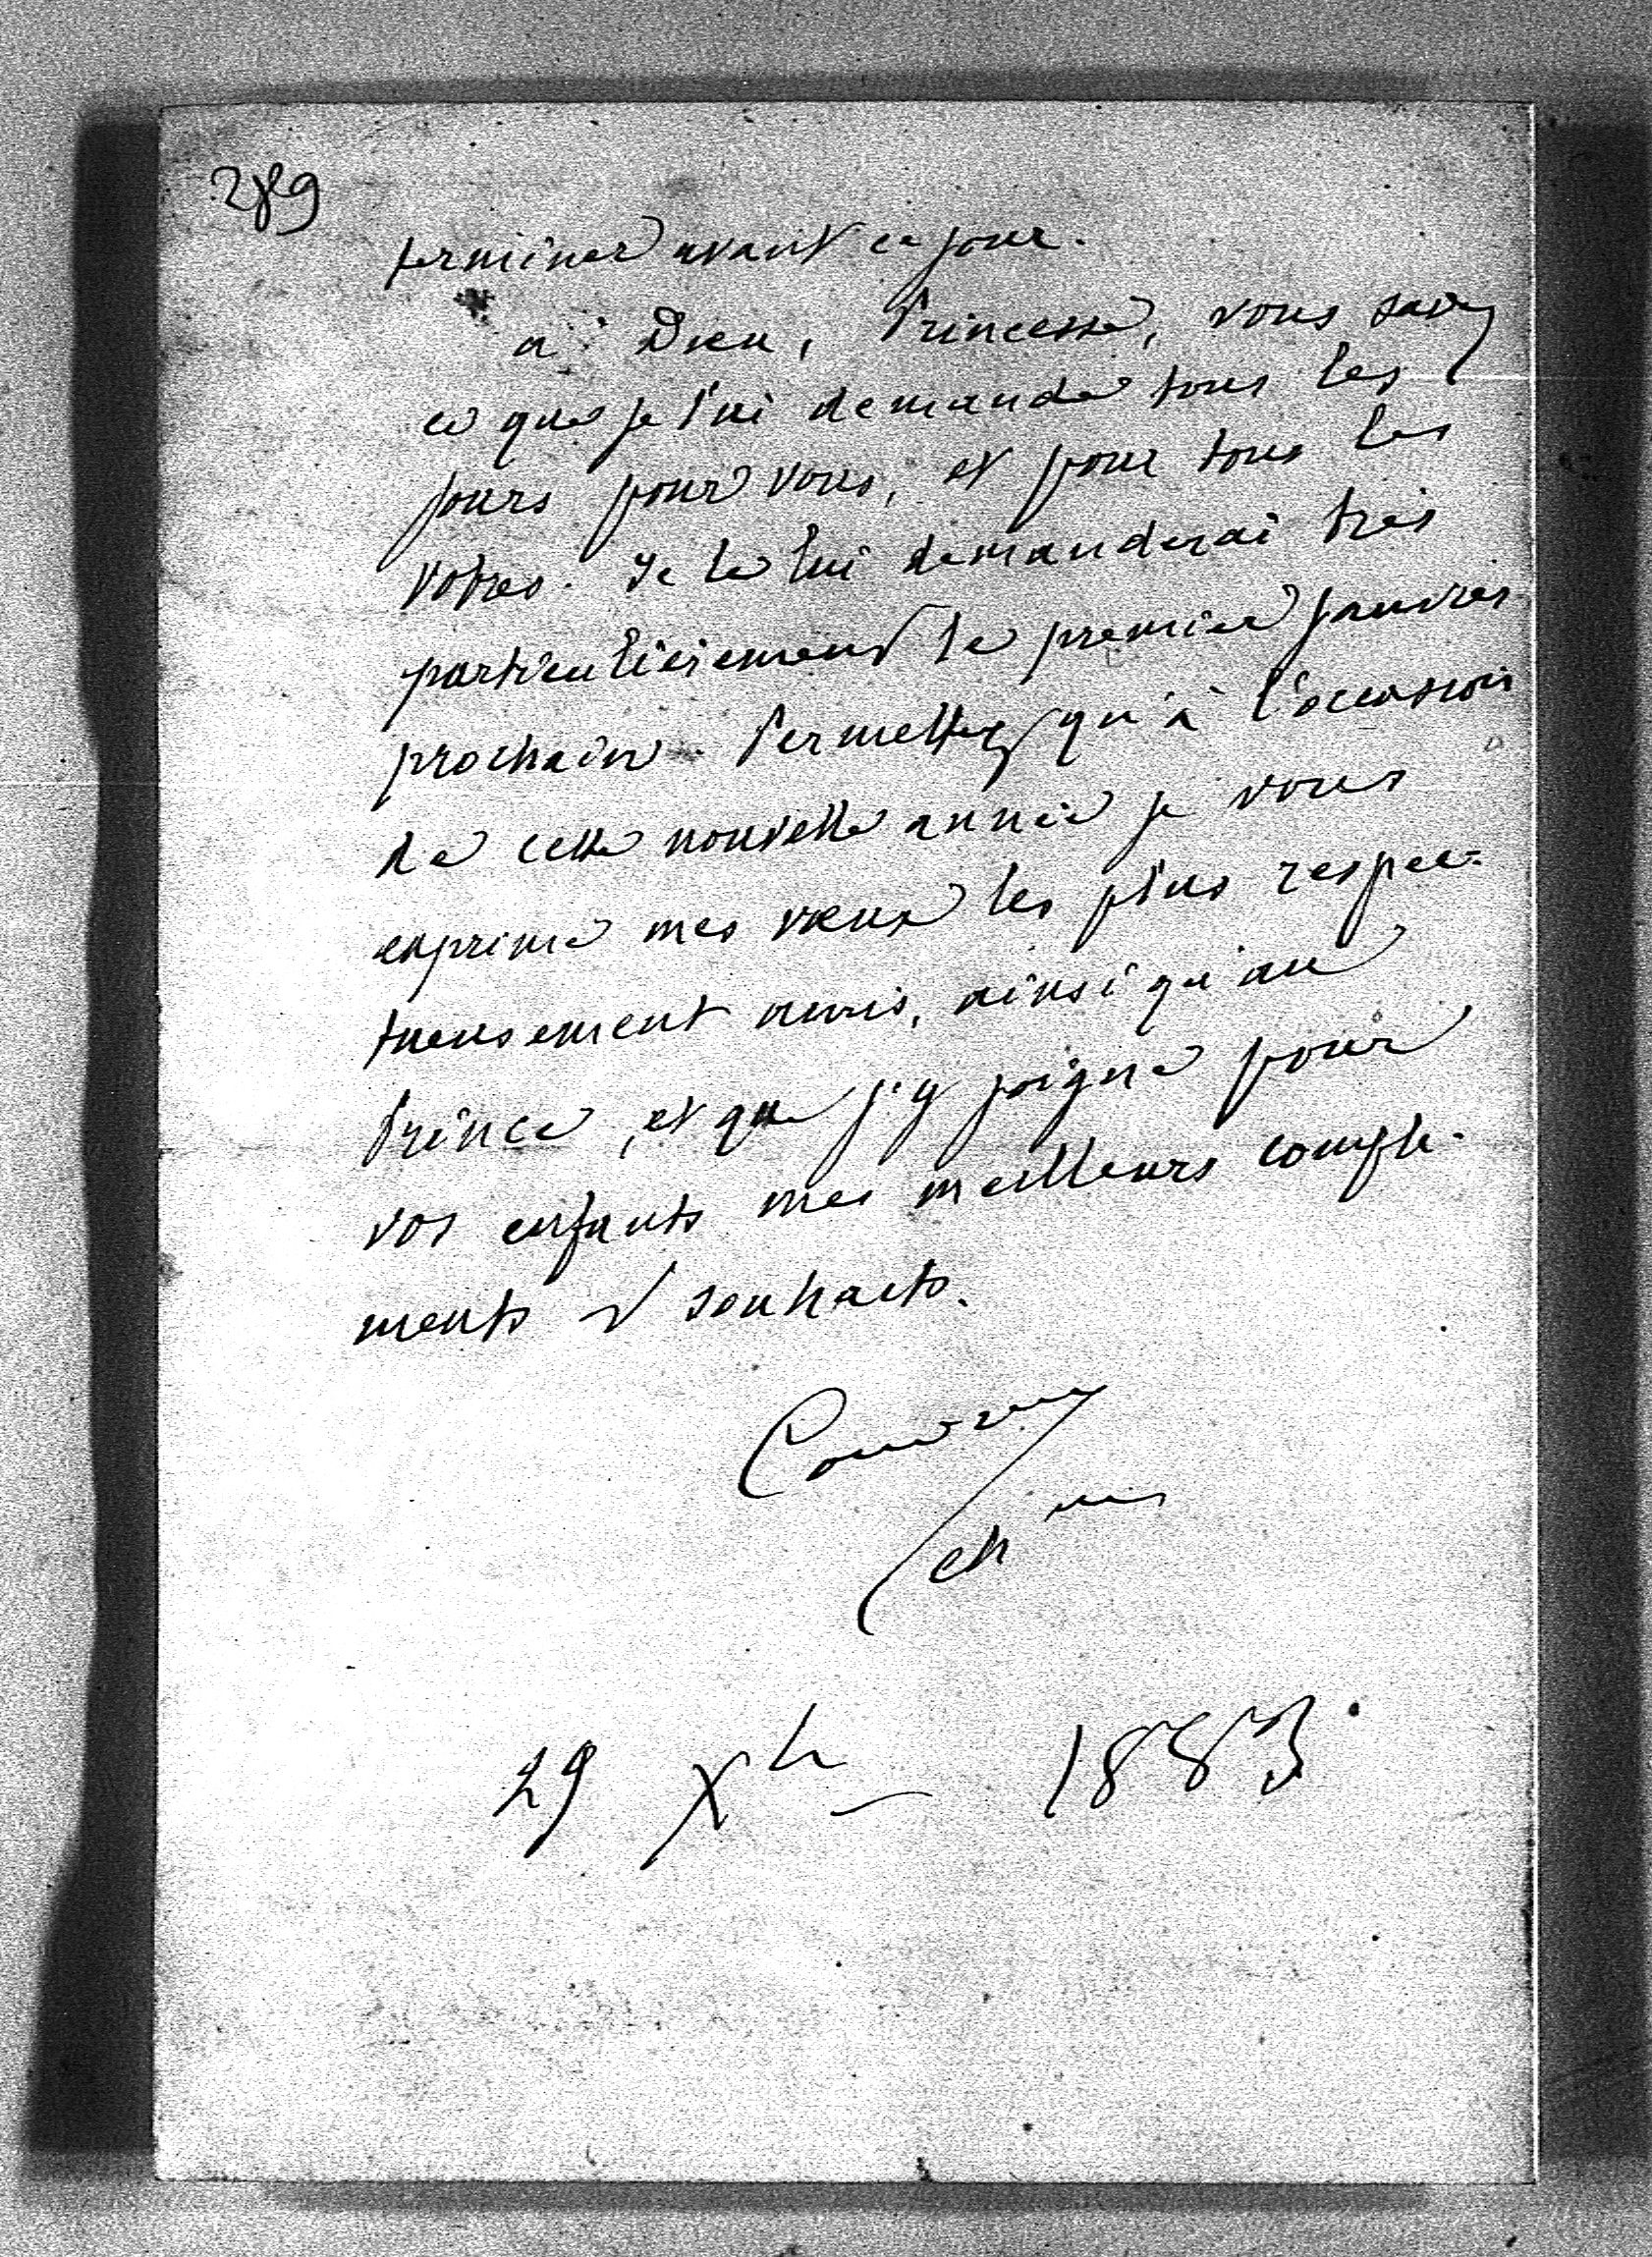 289
terminer avant ce jour.
à Dieu, Princesse, vous savez
ce que je lui demande tous les
jours pour vous, et pour tous les
vôtres. Je le lui demanderai très
particulièrement le premier janvier
prochain. Permettez qu'à l'occasion
de cette nouvelle année je vous
exprime mes vœux les plus respec-
tueusement amis, ainsi qu'au
Prince, et que j'y joigne pour
vos enfants mes meilleurs compli-
ments et souhaits.
ch
29 Xb 1883.